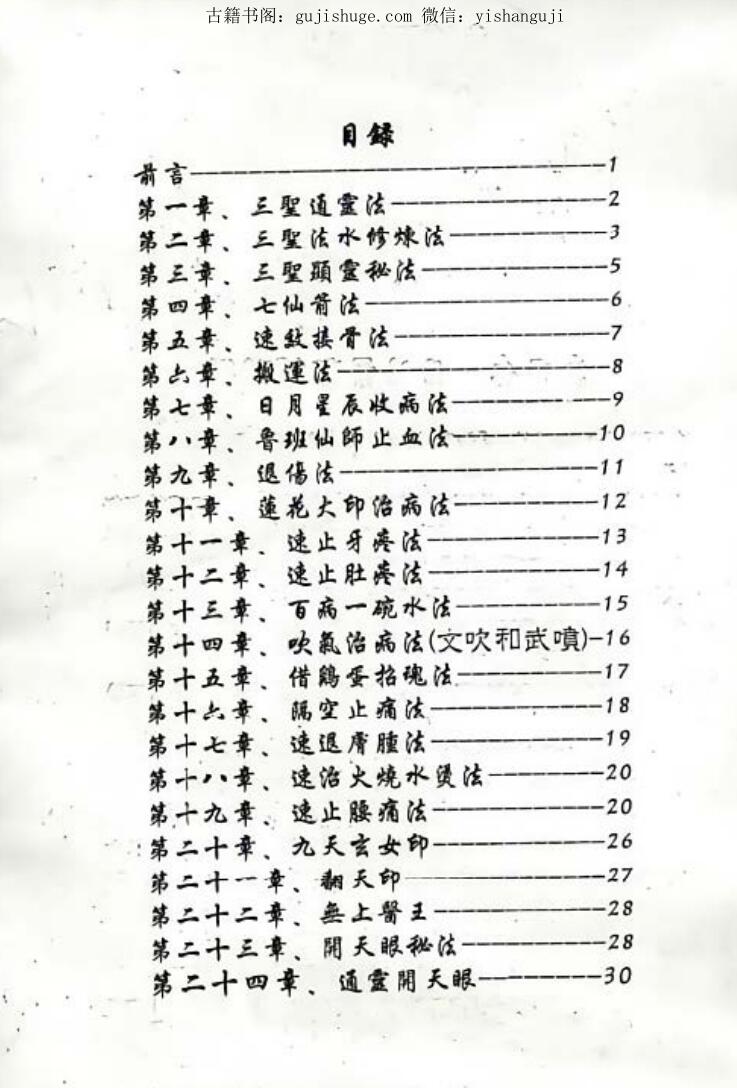 古籍书阁：gujishuge.com 微信：yishanguji
目錄
前言——1
第一章、三聖通靈法——2
第二章、三聖法水修煉法——3
第三章、三聖顯靈秘法——5
第四章、七仙箭法——6
第五章、速紋接骨法——7
第六章、搬運法——8
第七章、日月星辰收病法——9
第八章、魯班仙師止血法——10
第九章、退傷法——11
第十章、蓮花大印治病法——12
第十一章、速止牙疼法——13
第十二章、速止肚疼法——14
第十三章、百病一碗水法——15
第十四章、吹氣治病法(文吹和武噴)-16
第十五章、借鷄蛋招魂法——17
第十六章、隔空止痛法——18
第十七章、速退膚腫法——19
第十八章、速治火燒水燙法——20
第十九章、速止腰痛法——20
第二十章、九天玄女印——26
第二十一章、翻天印——27
第二十二章、無上醫王——28
第二十三章、開天眼秘法——28
第二十四章、通靈開天眼——30